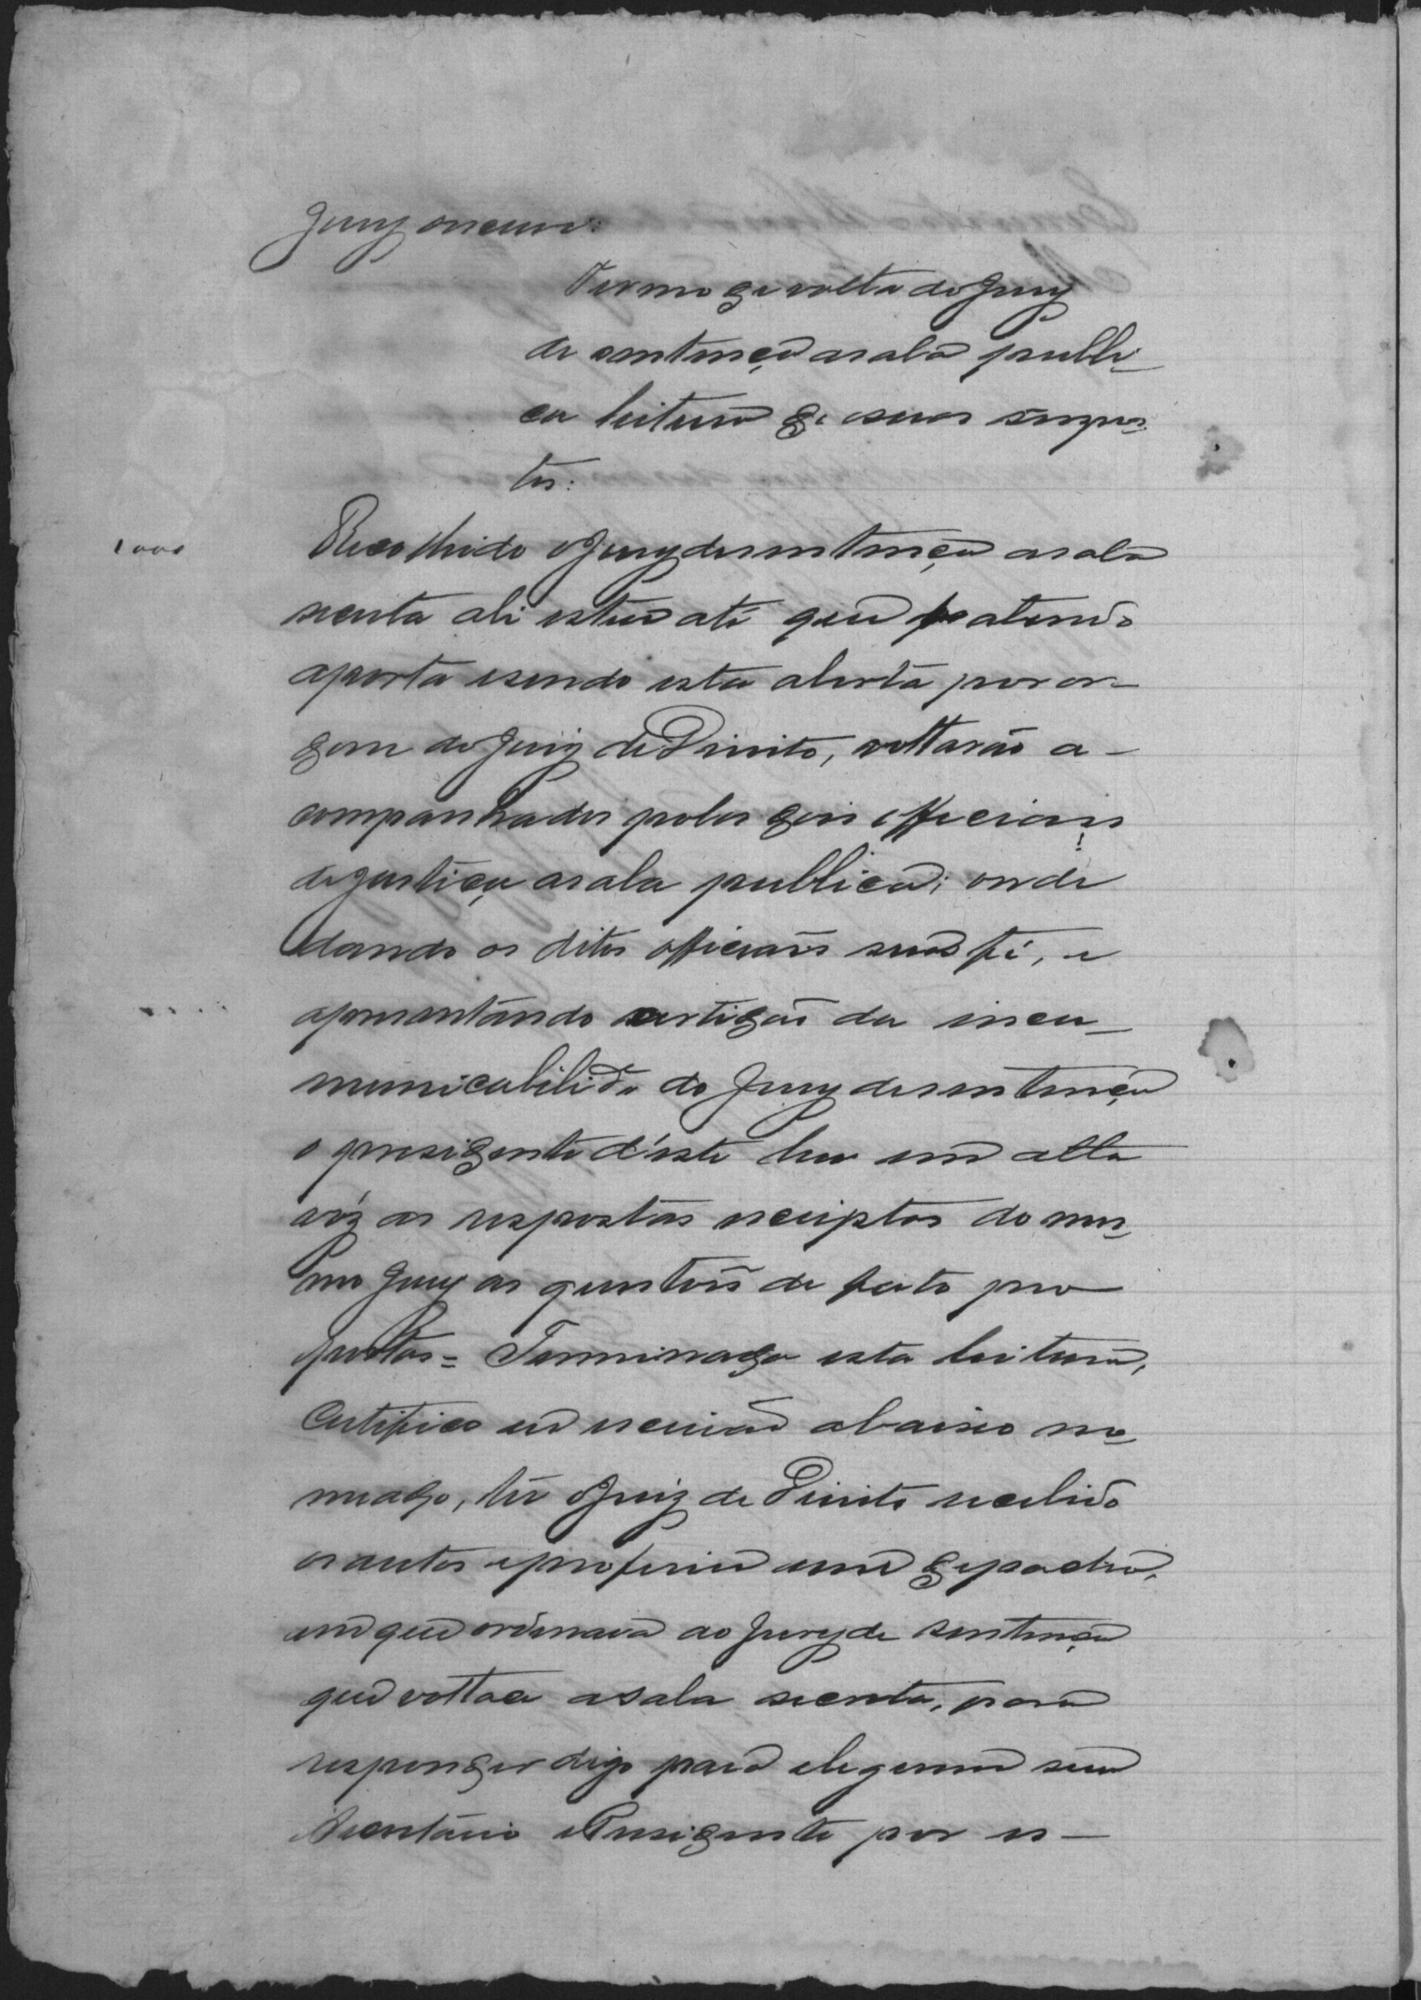 Jury
Termo de volta do Jury
de sentença a sala publi-
ca leitura de suas respos-
tas:
1000
Recolhido o Jury de sentença a sala
secreta ali esteve até que batendo
a porta e sendo esta aberta por or-
dem do Juiz de Direito, voltarão a-
companhados pelos dois officiais
de justiça a sala publica; onde
dando os ditos officiais sua fé, e
apresentando certidão da incu-
municabilide do Jury de sentença
o presidente d'este leu em alta
vóz as respostas escriptas do mes-
mo Jury as questões de facto pro
postas = Terminada esta leitura,
Certifico eu escrivão abaixo no-
meado, ter o Juiz de Direito recebido
os autos e proferiu um despacho,
em que ordenava ao Jury de sentença
que voltace a sala secreta, para
responder digo para elegerem seu
Secretário e Presidente por es-